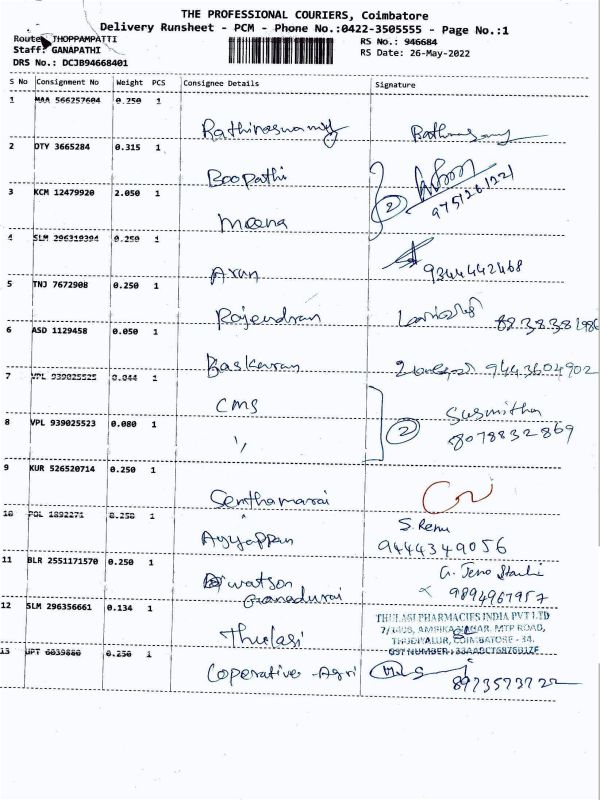 THE PROFESSIONAL COURIERS, Coimbatore
Delivery Runsheet - PCM - Phone No.:0422-3505555 - Page No.:1
Route: THOPPAMPATTI
RS No.: 946684
Staff: GANAPATHI
RS Date: 26-May-2022
DRS No.: DCJB94668401
S No Consignment No Weight PCS Consignee Details Signature
1 MAA 566257604 0.250 1
Rathinaswamy
2 OTY 3665284 0.315 1
Boopathi
2 9751261221
3 KCM 12479920 2.050 1
Meena
4 SLM 296319394 0.250 1
Arun 9344442468
5 TNJ 7672908 0.250 1
Rajendran
6 ASD 1129458 0.050 1
Baskaran 9443604902
7 VPL 939025525 0.044 1
CMS Susmitha
8 VPL 939025523 0.080 1
2 8078832869
9 KUR 526520714 0.250 1
Senthamarai
10 POL 1892271 0.250 1 S. Renu
Ayyappan 9444349056
11 BLR 2551171570 0.250 1
watson 9894967957
12 SLM 296356661 0.134 1
THULASI PHARMACIES INDIA PVT LTD
Thulasi
THUDIYALUR, COIMBATORE - 34.
13 JPT 6039880 0.250 1
Coperative Agri 8973573722